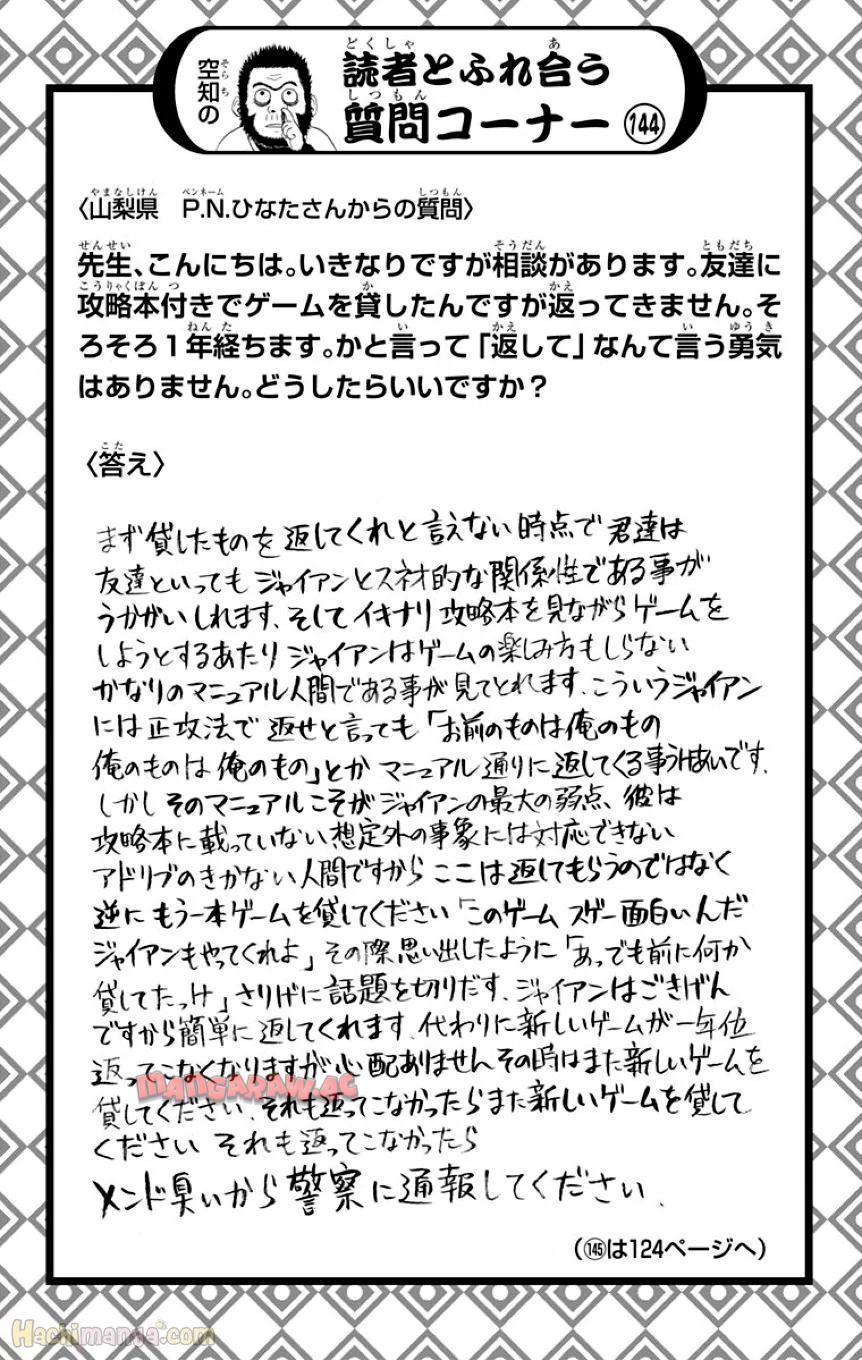 空知の
読者とふれ合う
質問コーナー 144
〈山梨県 P.N.ひなたさんからの質問〉
先生、こんにちは。いきなりですが相談があります。友達に
攻略本付きでゲームを貸したんですが返ってきません。そ
ろそろ1年経ちます。かと言って「返して」なんて言う勇気
はありません。どうしたらいいですか?
〈答え〉
まず貸したものを返してくれと言えない時点で君達は
友達といってもジャイアンとスネオ的な関係性である事が
うかがいしれます、そしてイキナリ攻略本を見ながらゲームを
しようとするあたりジャイアンはゲームの楽しみ方もしらない
かなりのマニュアル人間である事が見てとれます、こういうジャイアン
には正攻法で返せと言っても「お前のものは俺のもの
俺のものは俺のもの」とかマニュアル通りに返してくる事うけあいです、
しかしそのマニュアルこそがジャイアンの最大の弱点、彼は
攻略本に載っていない想定外の事象には対応できない
アドリブのきかない人間ですからここは返してもらうのではなく
逆にもう一本ゲームを貸してください「このゲームスゲー面白いんだ
ジャイアンもやってくれよ」その際思い出したように「あっでも前に何か
貸してたっけ」さりげに話題を切りだす、ジャイアンはごきげん
ですから簡単に返してくれます、代わりに新しいゲームが一年位
返ってこなくなりますが心配ありませんその時はまた新しいゲームを
MANGARAW.AC
貸してください、それも返ってこなかったらまた新しいゲームを貸して
くださいそれも返ってこなかったら
メンド臭いから警察に通報してください、
(145は124ページへ)
Hachimanga.com